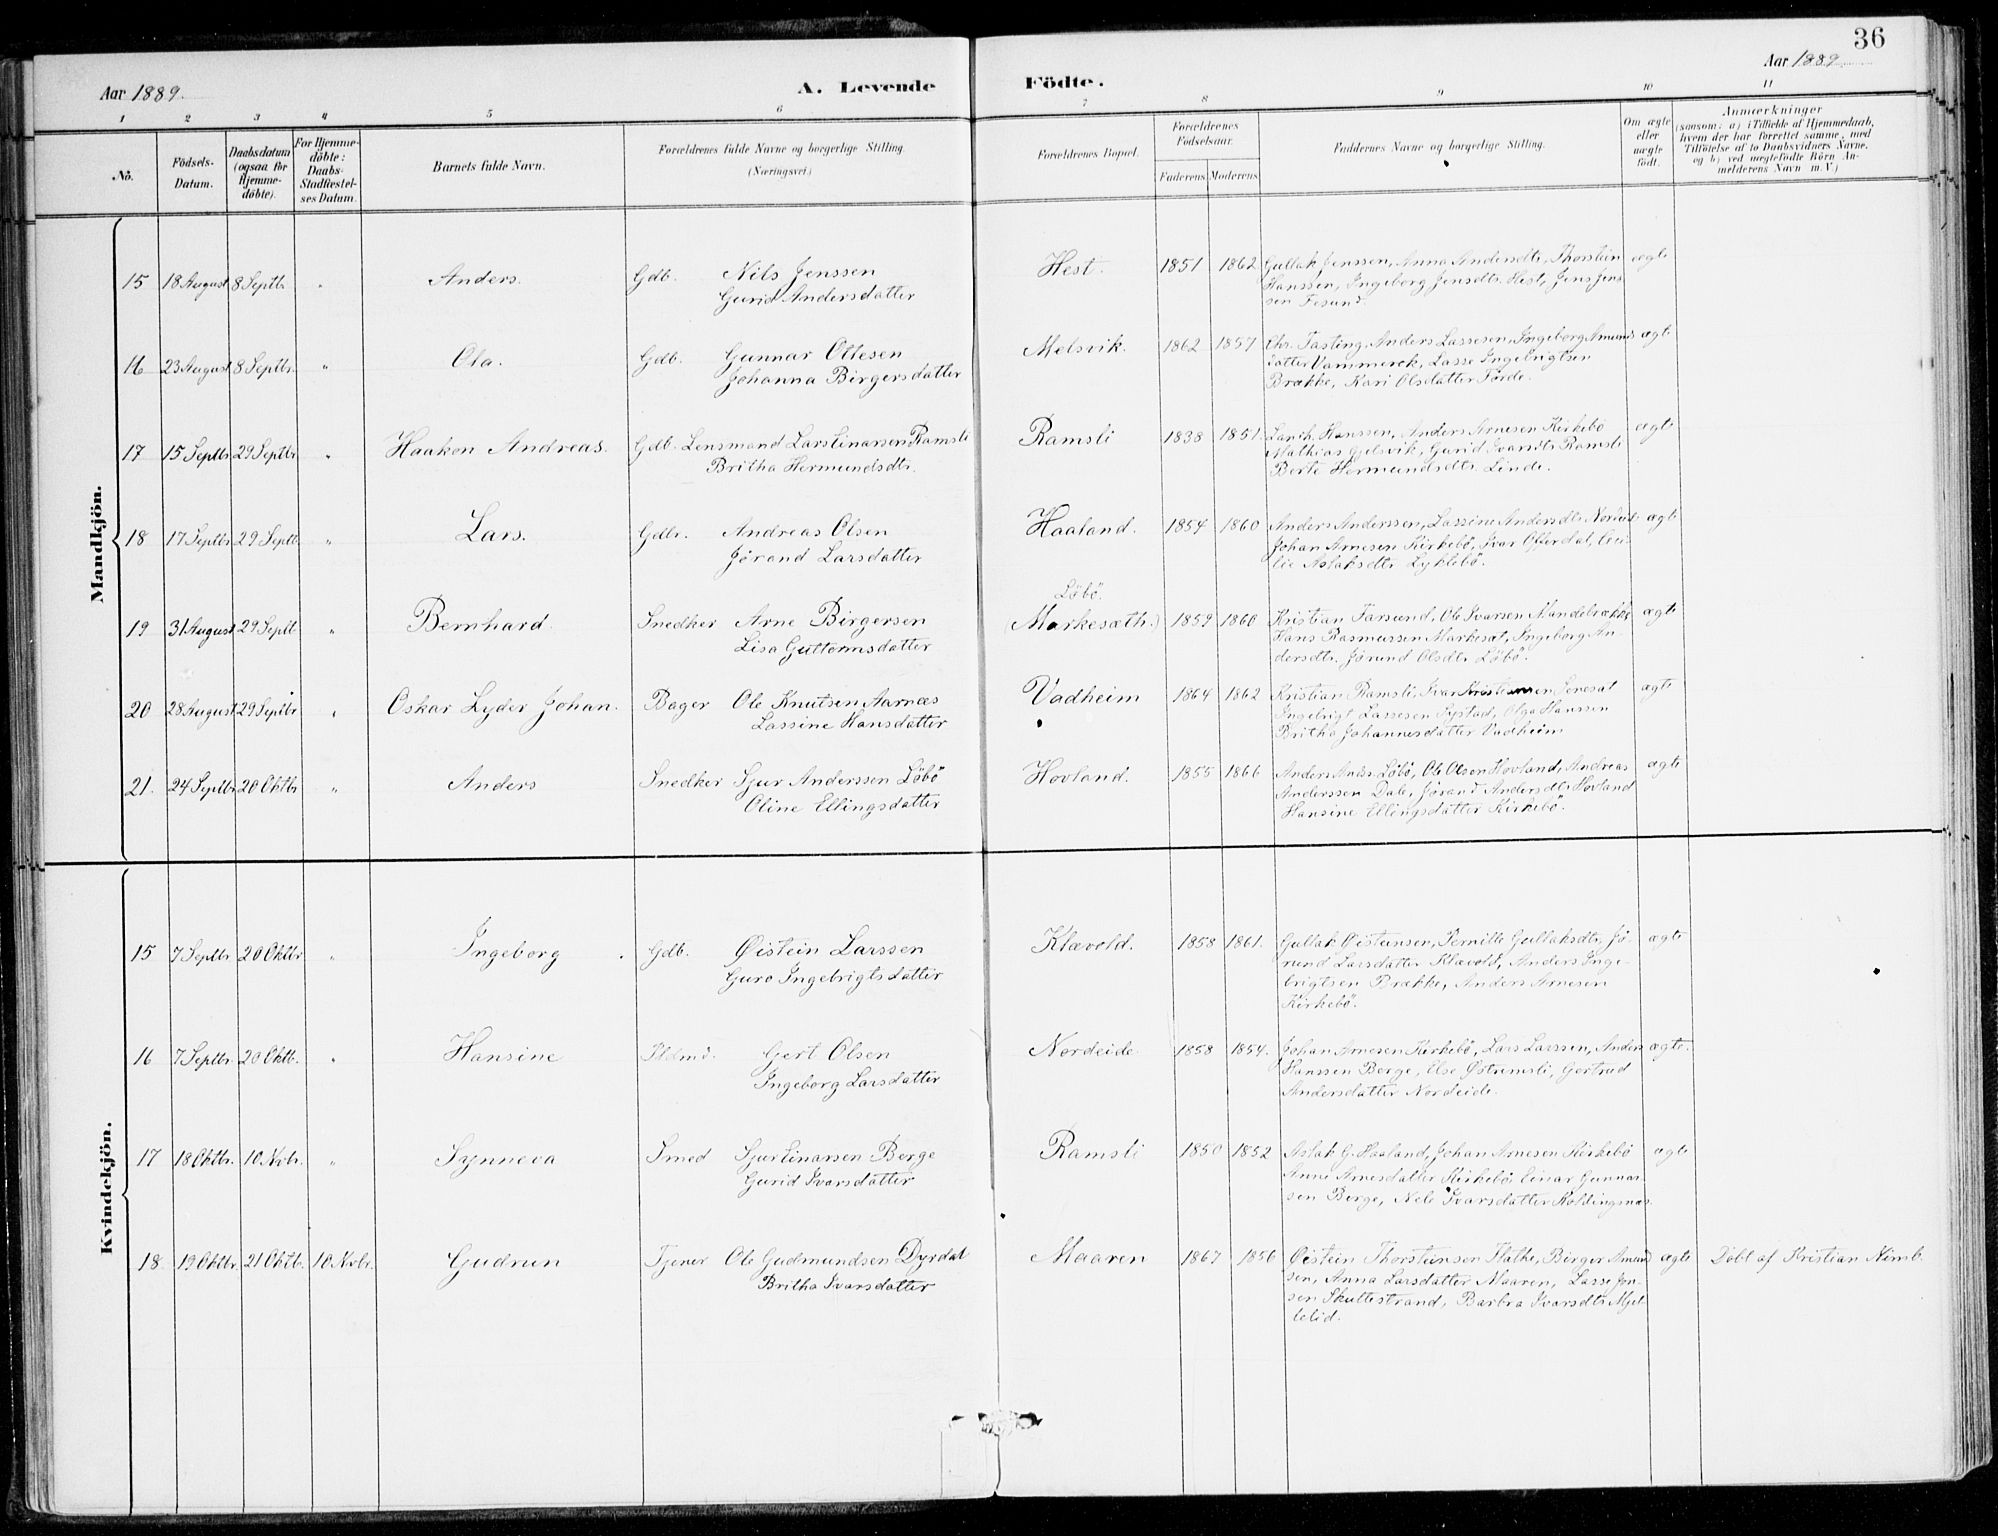 36
Aar 1889.
A. Levende
Födte.
Aar 1889
1 2 3 4 5 6 7 8 9 10 11
No.
Födsels-
Datum.
Daabsdatum
(ogsaa for
Hjemme-
döbte).
For Hjemme-
döbte:
Daabs-
Stadfæstel-
ses Datum.
Barnets fulde Navn.
Forældrenes fulde Navne og borgerlige Stilling.
(Næringsvei.)
Forældrenes Bopæl.
Forældrenes
Födselsaar.
Faderens
Moderens
Faddernes Navne og borgerlige Stilling.
Om ægte
eller
uægte
födt.
Anmærkninger
(saasom: a) i Tilfælde af Hjemmedaab,
hvem der har forrettet samme, med
Tilföielse af to Daabsvidners Navne,
og b) ved uægtefödte Börn An-
melderens Navn m. V.)
Mandkjön.
15 18 August 8 Septbr " Anders. Gdb. Nils Jenssen
Gurid Andersdatter
Hest. 1851 1862 Gullak Jenssen, Anna Andersdtr, Thorstein ægte
Hanssen, Ingeborg Jensdtr. Hest, Jens Jens
sen
16 23 August 8 Septbr. " Ola. Gdb. Gunnar Ottesen
Johanna Birgersdatter
Melsvik. 1862 1857 Chr. Tasting, Anders Lassesen, Ingeborg Amunds ægte
datter Vammerek, Lasse Ingebrigtsen
Brække, Kari Olsdatter Förde.
17 15 Septbr 29 Septbr " Haakon Andreas. Gdb. Lensmand Lars Einarsen Ramsli
Britha Hermundsdtr.
Ramsli 1838 1851 Hanssen, Anders Arnesen Kirkebö ægte
Mathias Gjelsvik, Gurid Ivarsdtr Ramsli
Berte Hermundsdtr. Linde.
18 17 Septbr 29 Septb. " Lars. Gdbr. Andreas Olsen
Jørand Larsdatter
Haaland. 1854 1860 Anders Anderssen, Lassine Andersdtr Nordeide ægte
Johan Arnesen Kirkebö, Ivar Offerdal, Ceci-
lie Aslaksdtr Lyklebö.
19 31 August 29 Septb. " Bernhard. Snedker Arne Birgersen
Lisa Guttormsdatter
Löbö.
(Markesæth.) 1859 1860 Kristian Farsund, Ole Ivarsen ægte
Hans Rasmussen Markesæt, Ingeborg An-
dersdtr. Jørund Olsdtr Löbö.
20 28 August 29 Septbr " Oskar Lyder Johan. Bager Ole Knutsen Aarnæs
Lassine Hansdatter
Vadheim 1864 1862 Kristian Ramsli, Ivar Kristiansen ægte
Ingebrigt Lassesen Systad, Olga Hanssen
Britha Johannesdatter Vadheim
21. 24 Septbr 20 Oktbr " Anders Snedker Sjur Anderssen Löbö
Oline Ellingsdatter
Hovland. 1855 1866 Anders Ands. Löbö, Ole Olsen Hovland, Andreas ægte
Anderssen Dale, Jørand Andersdtr Hovland
Hansine Ellingsdatter Kirkebö.
Kvindekjön.
15 7 Septbr. 20 Oktbr " Ingeborg Gdb. Øistein Larssen
Guro Ingebrigtsdatter
Klævold. 1858 1861. Gullak Øistensen, Pernille Gullaksdtr, Jö- ægte
rund Larsdatter Klævold, Anders Inge-
brigtsen Brække, Anders Arnesen
Kirkebö.
16 7 Septbr. 20 Oktb. " Hansine Gert Olsen
Ingeborg Larsdatter
Nordeide 1858 1854. Johan Arnesen Kirkebö, Lars Larssen, Anders ægte.
Hanssen Berge, Else Østremsli, Gertrud
Andersdatter Nordeide.
17 18 Oktbr. 10 Nvbr. " Synneva Smed Sjur Einarsen Berge
Gurid Ivarsdatter
Ramsli 1850 1852 Aslak G. Haaland, Johan Arnesen Kirkebö ægte
Anne Arnesdatter Kirkebö, Einar Gunnar-
sen Berge, Nele Ivarsdatter Koldingsnæs
18 19 Oktbr. 21 Oktb. 10 Nvbr. Gudrun Tjener Ole Gudmundsen Dyrdal
Britha Ivarsdatter
Maaren 1867 1856 Øistein Thorsteinsen Flathe, Birger Amund ægte Döbt af Kristian Nimb.
sen, Anna Larsdatter Maaren, Lasse Jon-
sen Skuttestrand, Barbra Ivarsdtr. Mjel-
lelid.